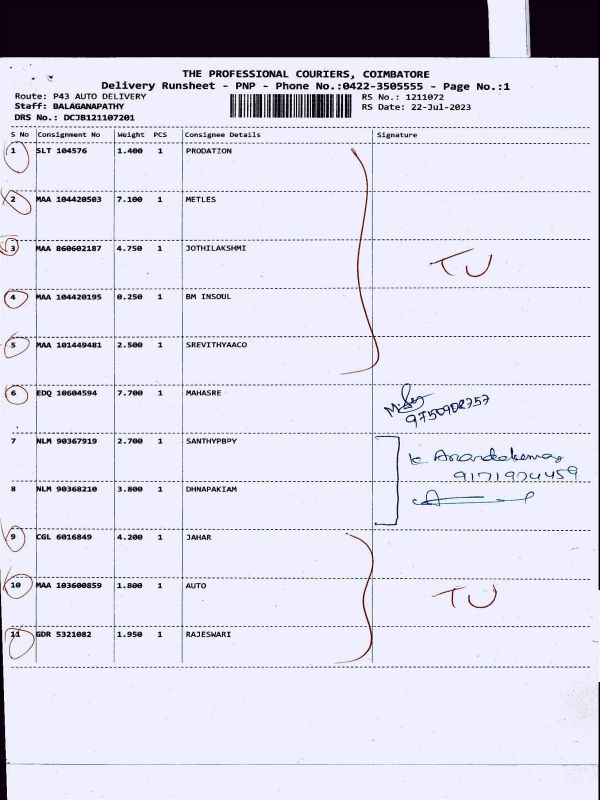 THE PROFESSIONAL COURIERS, COIMBATORE
Delivery Runsheet - PNP - Phone No.:0422-3505555 - Page No.:1
Route: P43 AUTO DELIVERY RS No.: 1211072
Staff: BALAGANAPATHY RS Date: 22-Jul-2023
DRS No.: DCJB121107201
S No Consignment No Weight PCS Consignee Details Signature
1 SLT 104576 1.400 1 PRODATION
2 MAA 104420503 7.100 1 METLES
3 MAA 860602187 4.750 1 JOTHILAKSHMI
TU
4 MAA 104420195 0.250 1 BM INSOUL
5 MAA 101449481 2.500 1 SREVITHYAACO
6 EDQ 10604594 7.700 1 MAHASRE
7 NLM 90367919 2.700 1 SANTHYPBPY
9171974459
8 NLM 90368210 3.800 1 DHNAPAKIAM
9 CGL 6016849 4.200 1 JAHAR
10 MAA 103600859 1.800 1 AUTO
TU
11 GDR 5321082 1.950 1 RAJESWARI